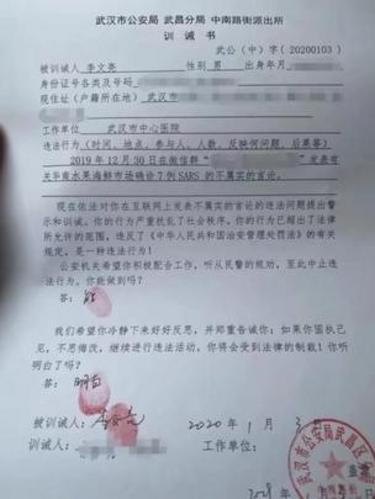 武汉市公安局 武昌分局 中南路街派出所
训 诫 书
武公（中）字（20200103）
被训诫人 李文亮 性别 男 出生年月
身份证号各类及号码
现住址（户籍所在地） 武汉市
工作单位 武汉市中心医院
违法行为（时间、地点、参与人、人数、反映何问题、后果等）
2019年12月30日在微信群“ ”发表有
关华南水果海鲜市场确诊7例SARS的不属实的言论。
现在依法对你在互联网上发表不属实的言论的违法问题提出警
示和训诫。你的行为严重扰乱了社会秩序。你的行为已超出了法律
所允许的范围，违反了《中华人民共和国治安管理处罚法》的有关
规定，是一种违法行为！
公安机关希望你积极配合工作，听从民警的规劝，至此中止违
法行为。你能做到吗？
答：能
我们希望你冷静下来好好反思，并郑重告诫你：如果你固执己
见，不思悔改，继续进行违法活动，你将会受到法律的制裁！你听
明白了吗？
答：明白
被训诫人：李文亮 2020年1月3日
训诫人： 工作单位：
武汉市公安局武昌区